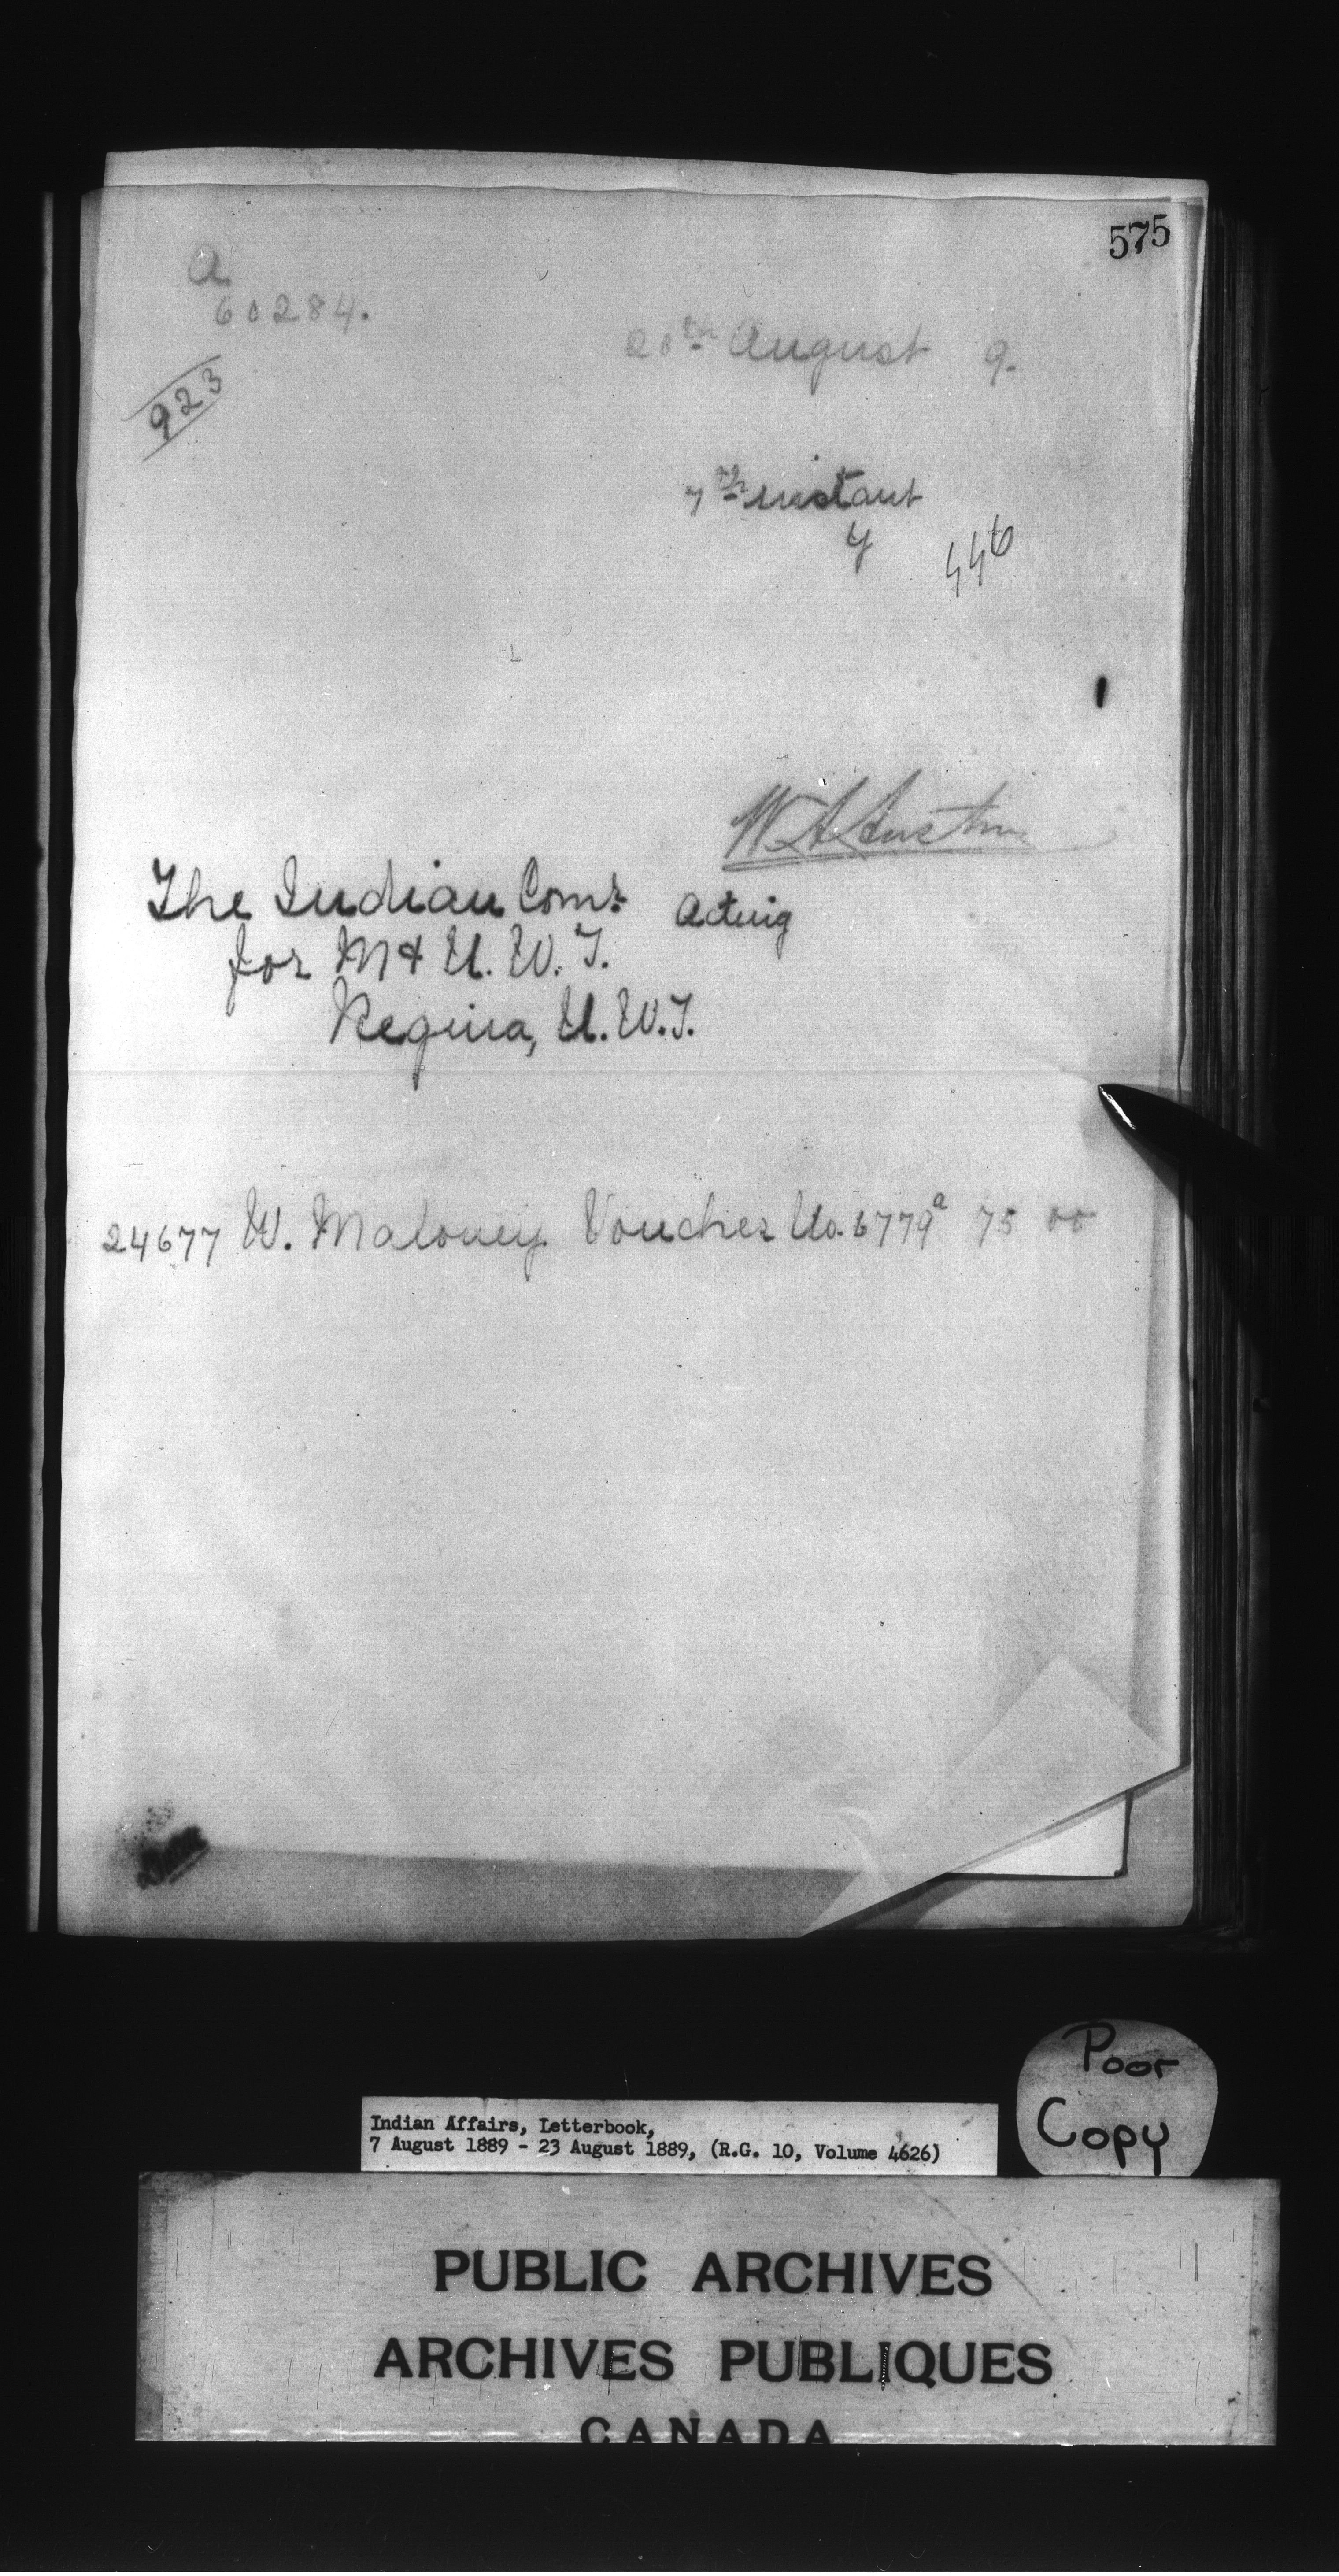 575
a
60284.
20th August 9.
923
7th instant
y
446
W A Austin
The Indian Comr Acting
for M & N. W. T.
Regina, N. W. T.
24677 W. Maloney Voucher No. 6779a 75 00
Poor
Copy
Indian Affairs, Letterbook,
7 August 1889 - 23 August 1889, (R.G. 10, Volume 4626)
PUBLIC ARCHIVES
ARCHIVES PUBLIQUES
CANADA